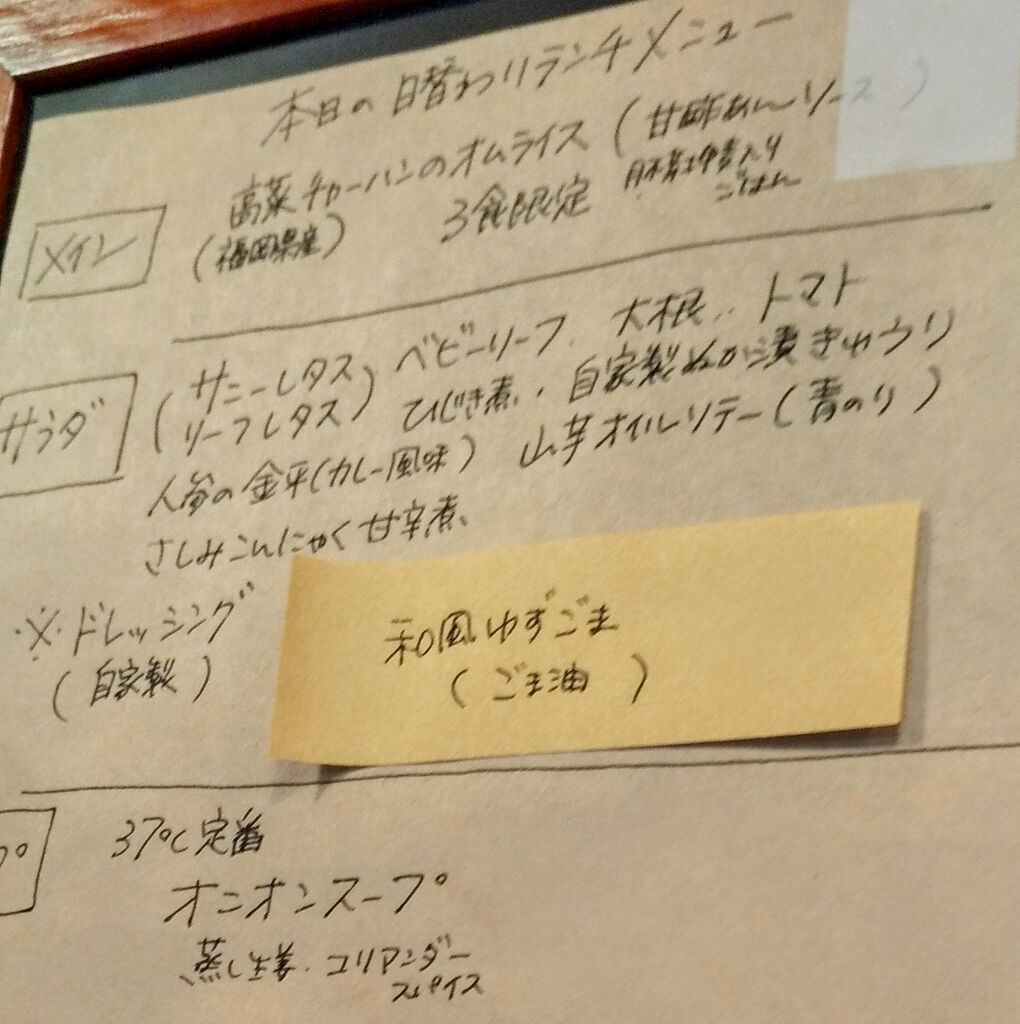 本日の日替わりランチメニュー
メイン
高菜チャーハンのオムライス (甘酢あんソース)
(福岡県産) 3食限定 入り
ごはん
サラダ
(サニーレタス リーフレタス) ベビーリーフ、大根、トマト
ひじき煮、自家製ぬか漬きゅうり
人参の金平(カレー風味) 山芋オイルソテー(青のり)
さしみこんにゃく甘辛煮、
※ドレッシング
(自家製)
和風ゆずごま
(ごま油)
プ
37℃定番
オニオンスープ
蒸し生姜、コリアンダー
スパイス